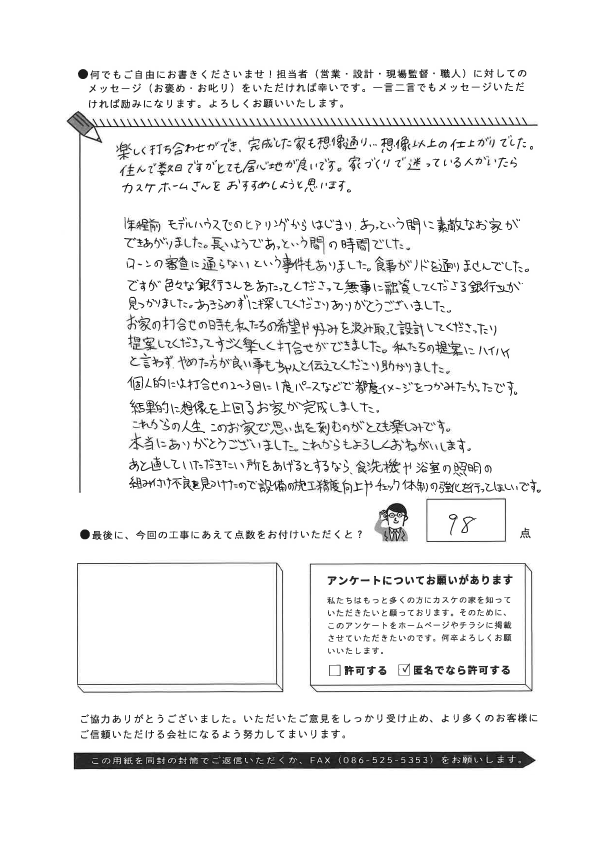 ●何でもご自由にお書きくださいませ！担当者（営業・設計・現場監督・職人）に対しての
メッセージ（お褒め・お叱り）をいただければ幸いです。一言二言でもメッセージいただ
ければ励みになります。よろしくお願いいたします。
楽しく打ち合わせができ、完成した家も想像通り、、想像以上の仕上がりでした。
住んで数日ですがとても居心地が良いです。家づくりで迷っている人がいたら
カスケホームさんをおすすめしようと思います。
1年程前 モデルハウスでのヒアリングからはじまり、あっという間に素敵なお家が
できあがりました。長いようであっという間の時間でした。
ローンの審査に通らないという事件もありました。食事がノドを通りませんでした。
ですが色々な銀行さんをあたってくださって無事に融資してくださる銀行さんが
見つかりました。あきらめずに探してくださりありがとうございました。
お家の打合せの時も私たちの希望や好みを汲み取って設計してくださったり
提案してくださってすごく楽しく打合せができました。私たちの提案にハイハイ
と言わず、やめた方が良い事もちゃんと伝えてくださり助かりました。
個人的には打合せの2〜3日に1度パースなどで都度イメージをつかみたかったです。
結果的に想像を上回るお家が完成しました。
これからの人生、このお家で思い出を刻むのがとても楽しみです。
本当にありがとうございました。これからもよろしくおねがいします。
あと直していただきたい所をあげるとするなら、食洗機や浴室の照明の
組み付け不良を見つけたので設備の施工精度向上やチェック体制の強化を行ってほしいです。
●最後に、今回の工事にあえて点数をお付けいただくと？
98
点
アンケートについてお願いがあります
私たちはもっと多くの方にカスケの家を知って
いただきたいと願っております。そのために、
このアンケートをホームページやチラシに掲載
させていただきたいのです。何卒よろしくお願
いいたします。
□許可する ☑匿名でなら許可する
ご協力ありがとうございました。いただいたご意見をしっかり受け止め、より多くのお客様に
ご信頼いただける会社になるよう努力してまいります。
この用紙を同封の封筒でご返信いただくか、FAX（086-525-5353）をお願いします。